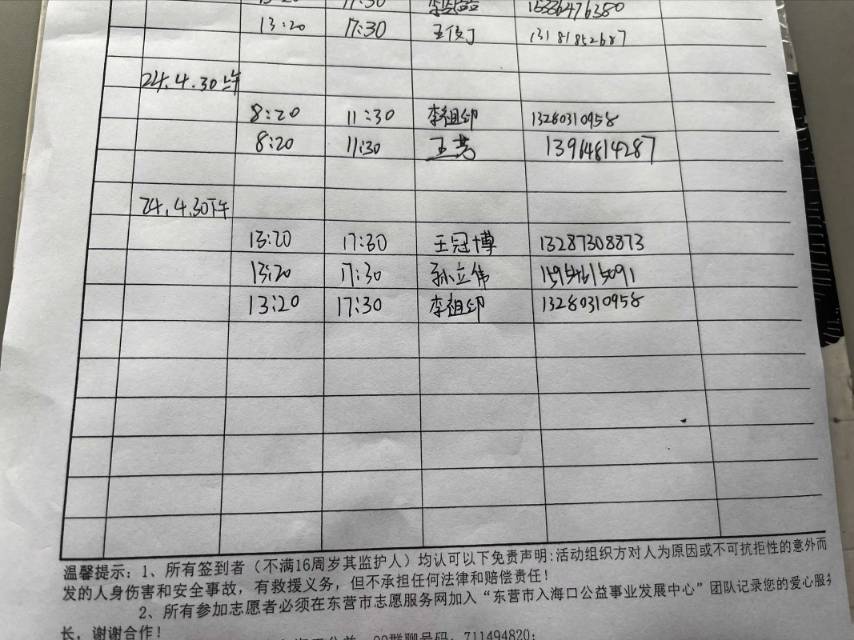 13:20 17:30 王俊丁 13181852687
24.4.30上午
8:20 11:30 李祖印 13280310958
8:20 11:30 王芳 13964814287
24.4.30下午
13:20 17:30 王冠博 13287308873
13:20 17:30 孙立伟
13:20 17:30 李祖印 13280310958
温馨提示：1、所有签到者（不满16周岁其监护人）均认可以下免责声明:活动组织方对人为原因或不可抗拒性的意外而
发的人身伤害和安全事故，有救援义务，但不承担任何法律和赔偿责任！
2、所有参加志愿者必须在东营市志愿服务网加入“东营市入海口公益事业发展中心”团队记录您的爱心服务
长，谢谢合作！
711494820;